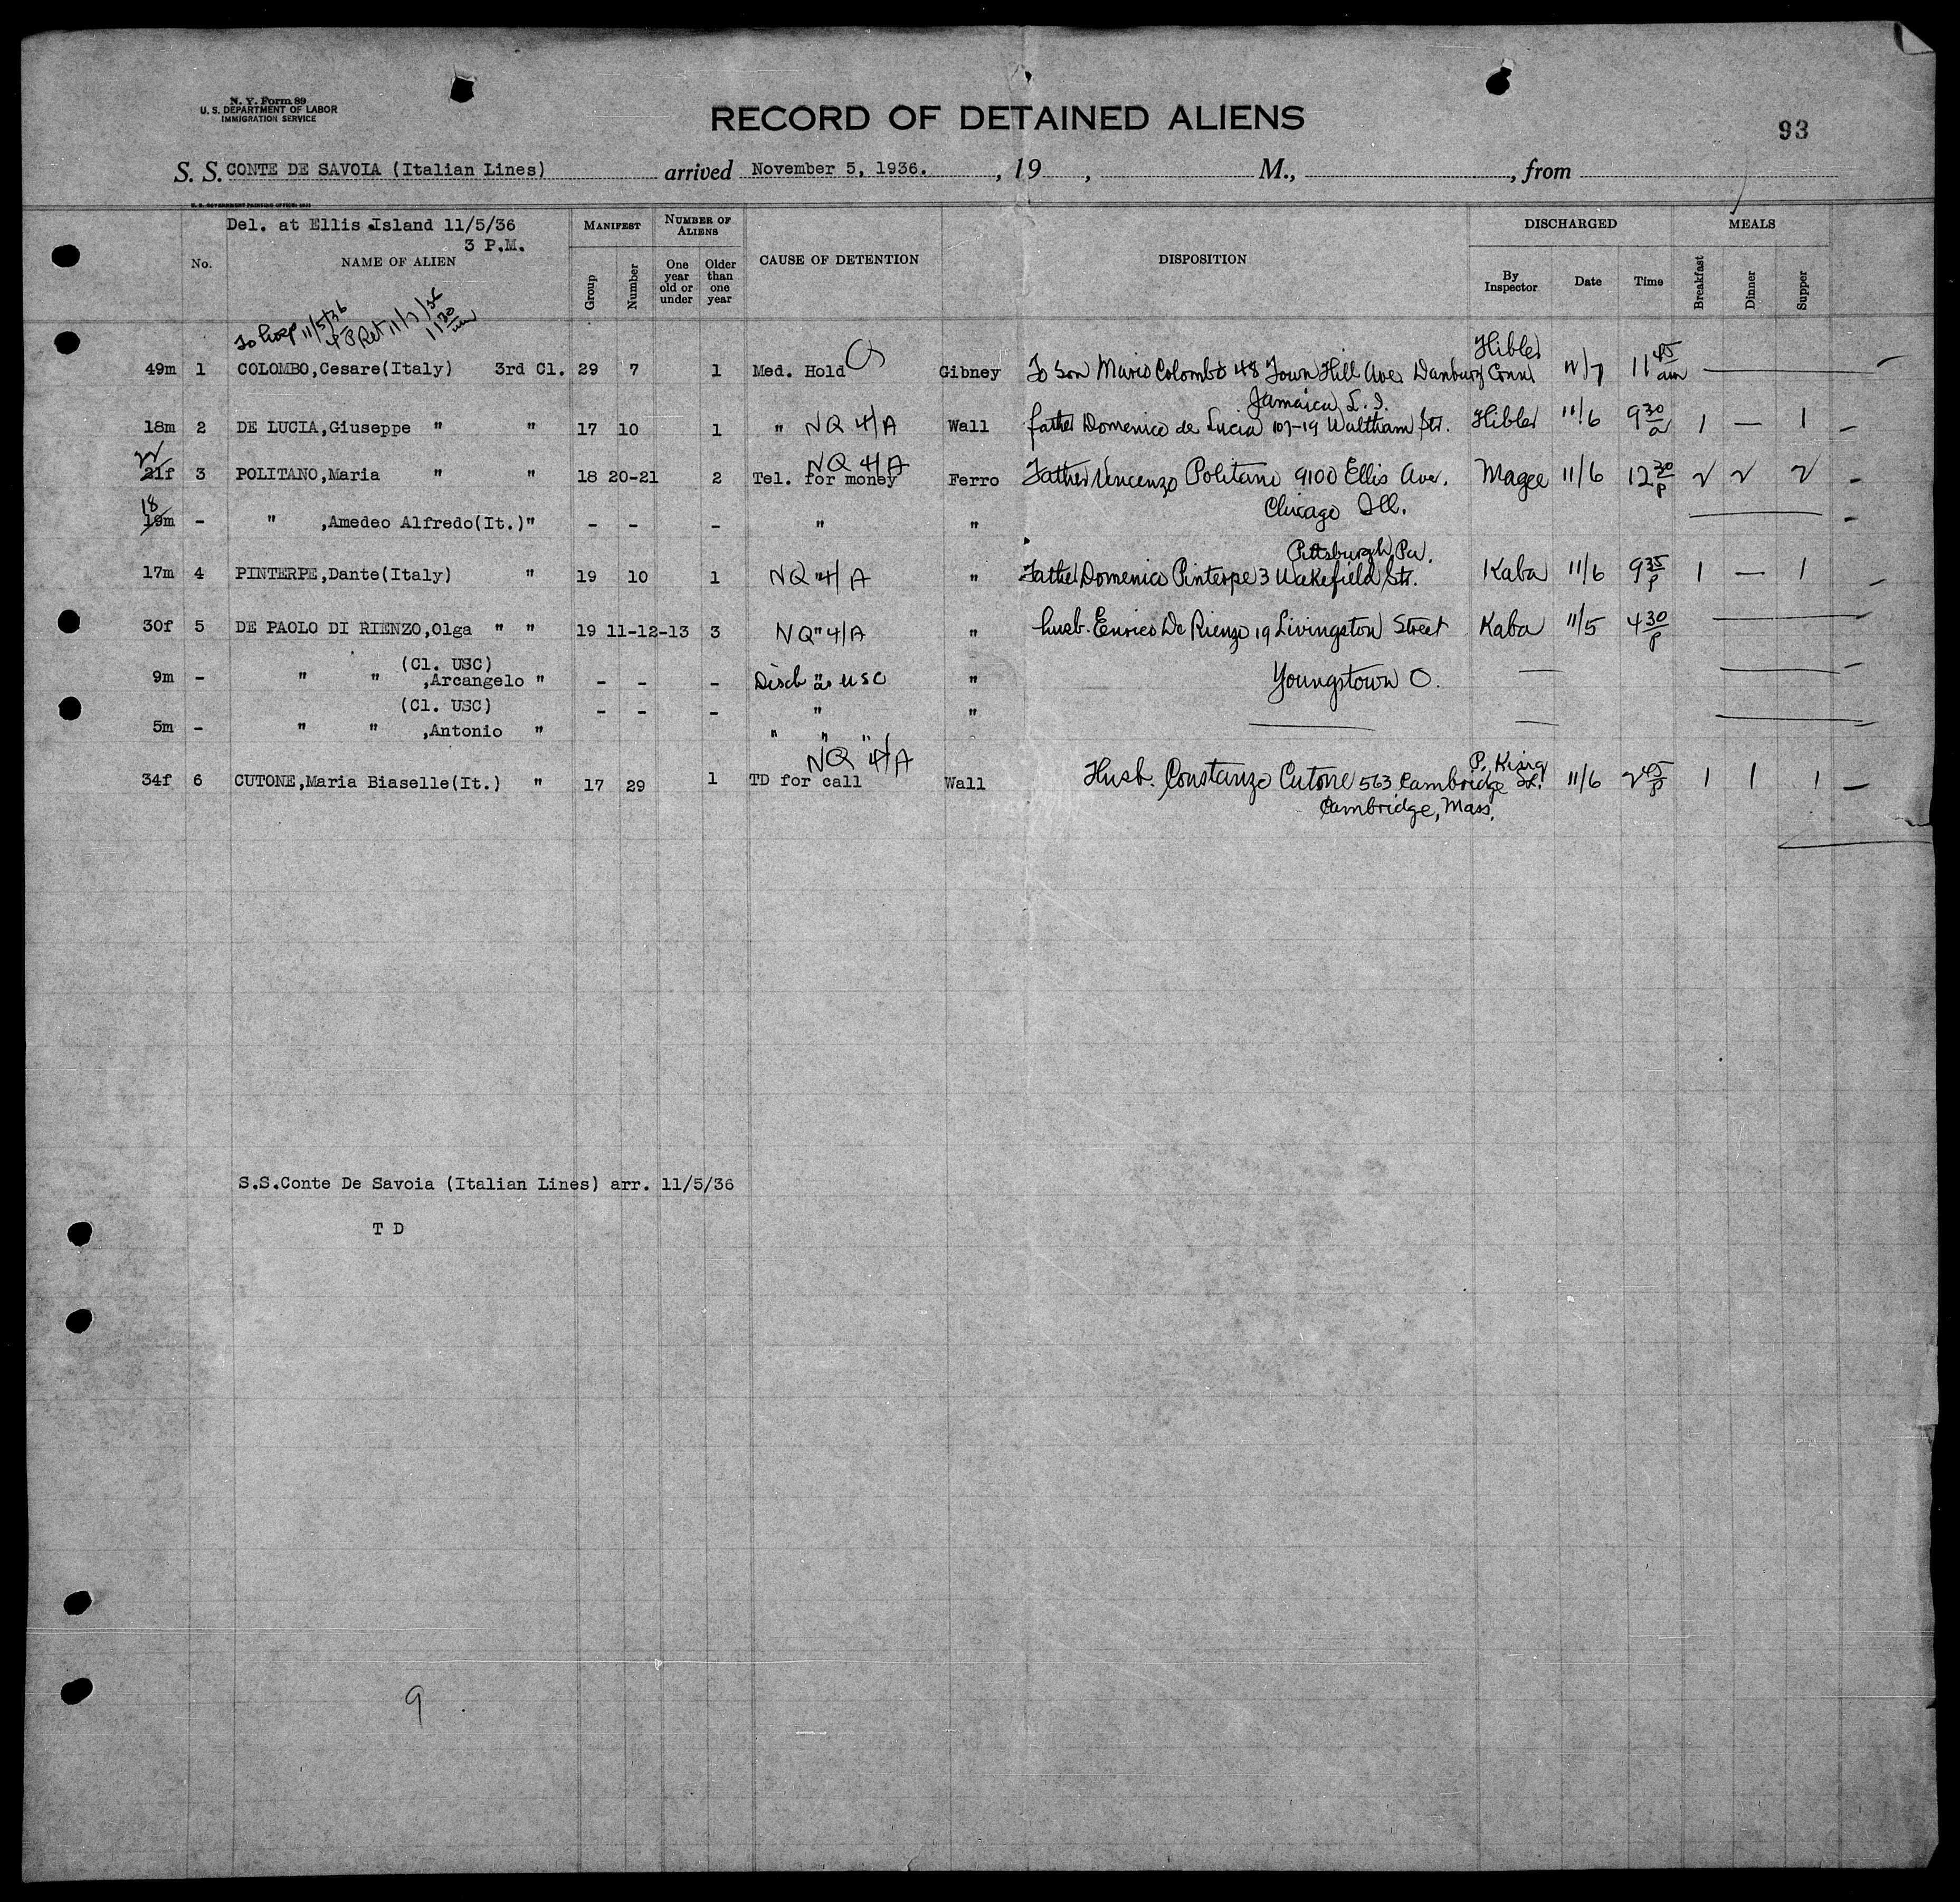 N. Y. Form 89
U. S. DEPARTMENT OF LABOR
IMMIGRATION SERVICE
RECORD OF DETAINED ALIENS
93
S. S. CONTE DE SAVOIA (Italian Lines) arrived November 5, 1936. , 19 , M., , from
Del. at Ellis Island 11/5/36
3 P.M.
No. NAME OF ALIEN MANIFEST Group Number NUMBER OF ALIENS One year old or under Older than one year CAUSE OF DETENTION DISPOSITION DISCHARGED By Inspector Date Time MEALS Breakfast Dinner Supper
To hosp 11/5/36
Ret 11/7/36
11 20 am
Hibler
49m 1 COLOMBO,Cesare(Italy) 3rd Cl. 29 7 1 Med. Hold Gibney To son Mario Colombo 48 Town Hill Ave Danbury Conn 11/7 11 45 am
Jamaica L.I.
18m 2 DE LUCIA,Giuseppe " " 17 10 1 " NQ 4/A Wall father Domenico de Lucia 107-19 Waltham Str. Hibler 11/6 9 30 a 1 — 1 -
22 NQ 4/A
21f 3 POLITANO,Maria " " 18 20-21 2 Tel. for money Ferro Father Vincenzo Politano 9100 Ellis Ave. Magee 11/6 12 30 p 2 2 2 -
18 Chicago Ill.
19m - " ,Amedeo Alfredo(It.)" - - - " "
Pittsburgh, Pa.
17m 4 PINTERPE,Dante(Italy) " 19 10 1 NQ "4/A " Father Domenico Pinterpe 3 Wakefield Str. Kaba 11/6 9 35 p 1 — 1 -
30f 5 DE PAOLO DI RIENZO,Olga " " 19 11-12-13 3 NQ "4/A " husb. Enrico De Rienzo 19 Livingston Street Kaba 11/5 4 30 p
(Cl. USC)
9m - " " ,Arcangelo " - - - Disch as USC " Youngstown O.
(Cl. USC) - - - " "
5m - " " ,Antonio " " " "
NQ 4/A P. King
34f 6 CUTONE,Maria Biaselle(It.) " 17 29 1 TD for call Wall Husb. Constanzo Cutone 563 Cambridge St. 11/6 2 45 p 1 1 1 -
Cambridge, Mass.
S.S.Conte De Savoia (Italian Lines) arr. 11/5/36
T D
9